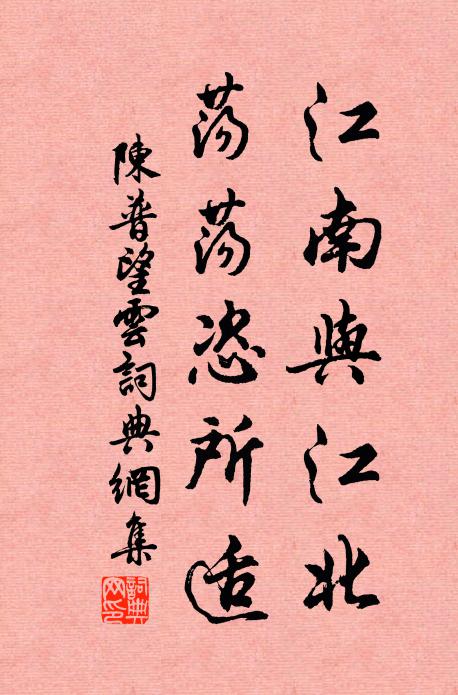 江南與江北
荡荡恣所适
陳普望雲詞典網集
詞典网印